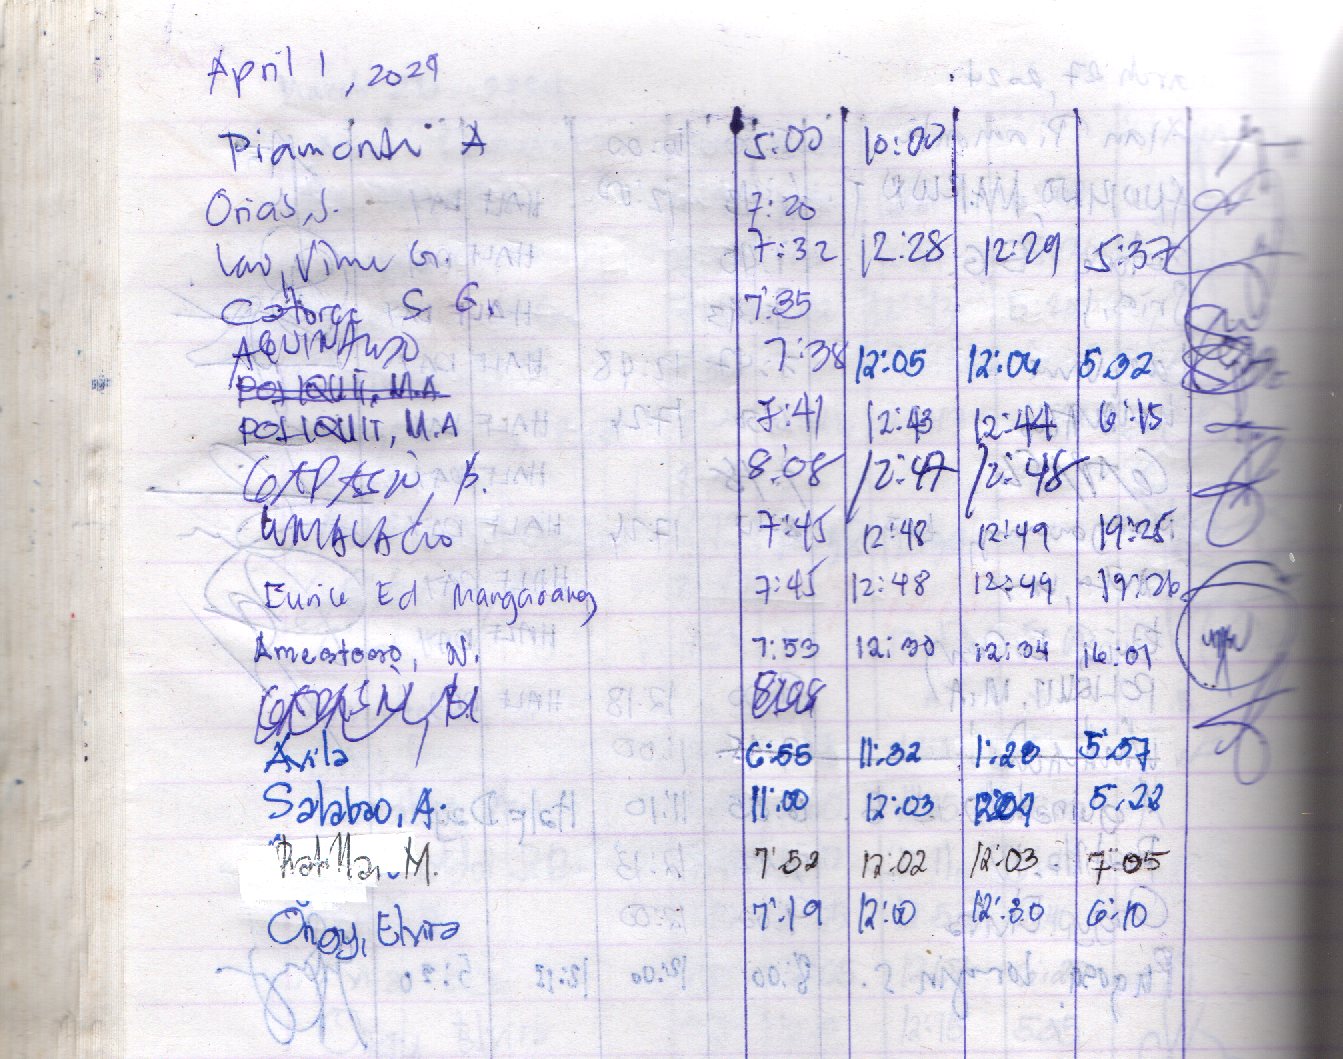 April 1, 2024
Piamonte A 5:00 10:00
Orias, J. 7:20
Lao, Vime G. 7:32 12:28 12:29 5:37
Catorce S. G. 7:35
AQUINALDO 7:38 12:05 12:06 5:32
POLIQUIT, M.A
POLIQUIT, M.A 7:41 12:43 12:44 6:15
GAPASIN, B. 8:08 12:47 12:48
UMALACIO 7:45 12:48 12:49 19:25
Eunice Ed Mangaoang 7:45 12:48 12:49 19:26
Amestoso, N. 7:53 12:30 12:34 16:01
Avila 6:55 11:32 1:28 5:57
Salabao, A. 11:00 12:03 1204 5:22
M. 7:52 12:02 12:03 7:05
Oñoy, Elvira 7:19 12:00 12:30 6:10